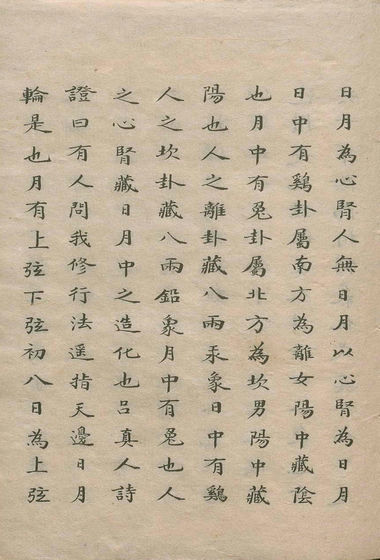 日月為心腎人無日月以心腎為日月
日中有鷄卦屬南方為離女陽中藏陰
也月中有兔卦屬北方為坎男陽中藏
陽也人之離卦藏八兩汞象日中有鷄
人之坎卦藏八兩鉛象月中有兔也人
之心腎藏日月中之造化也呂真人詩
證曰有人問我修行法遥指天邊日月
輪是也月有上弦下弦初八日為上弦